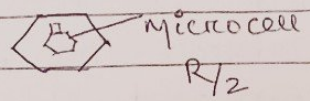 Microcell
R/2